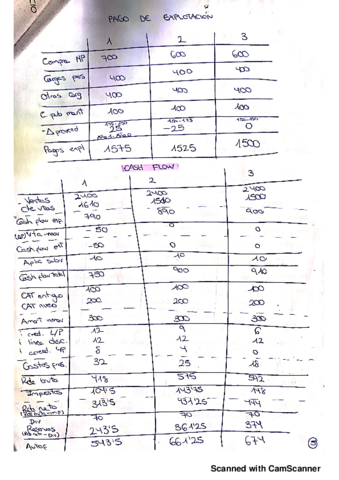 PAGO DE EXPLOTACIÓN
1 2 3
Compra MP 700 600 600
Cargas pers 400 400 400
Otros carg 400 400 400
C pub mant 100 100 100
-Δ proveed 25 -25 0
Pagos expl 1575 1525 1500
CASH FLOW
1 2 3
- Ventas 2400 2400 2400
Cte vtas 1610 1510 1500
Cash flow exp 790 890 900
- 50 0
Cash flow ext -50 0 0
Aplic subv 10 10 10
Cash flow total 750 900 910
CAT antiguo 100 100 100
CAT nuevo 200 200 200
Amort 300 300 300
cred. L/P 12 9 6
linea desc. 12 12 12
8 4 0
Gastos fros. 32 25 18
Rdo bruto 418 575 592
Impuestos 104'5 143'75 148
Rdo neto 313'5 431'25 444
Div 70 70 70
Reservas 243'5 361'25 374
Autof 543'5 661'25 674
Scanned with CamScanner